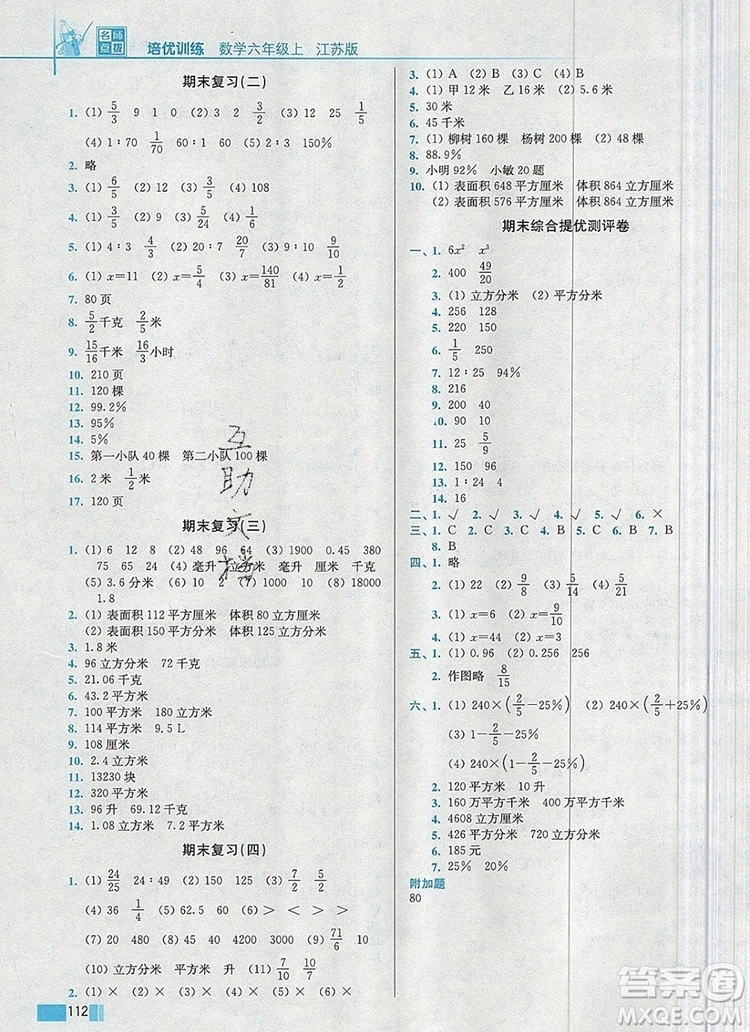 名师点拨 培优训练 数学六年级上 江苏版
期末复习(二)
1. (1) 5/3 9 1 0 (2) 3 2 3 8/3 (3) 12 25 1/5
(4) 1∶70 1/70 60∶1 60 (5) 2∶5 150%
2. 略
3. (1) 6/5 (2) 12 (3) 3/5 (4) 108
4. (1) 5/3 (2) 9 (3) 5/24 (4) 1/6
5. (1) 4∶3 4/3 (2) 20∶7 20/7 (3) 9∶10 9/10
6. (1) x=11 (2) x=5/4 (3) x=140/81 (4) x=1/2
7. 80 页
8. 5/2千克 2/5米
9. 15/16千米 16/3小时
10. 210 页
11. 120 棵
12. 99.2%
13. 95%
14. 5%
15. 第一小队 40 棵 第二小队 100 棵
16. 2 米 1/2米
17. 120 页
期末复习(三)
1. (1) 6 12 8 (2) 48 96 64 (3) 1900 0.45 380
75 65 24 (4) 毫升 立方米 毫升 升 立方米
(5) 3.6 分米 (6) 10 2 (7) 1000 10 (8) 18000
1.8
2. (1) 表面积 112 平方厘米 体积 80 立方厘米
(2) 表面积 150 平方分米 体积 125 立方分米
3. 1.8 米
4. 96 立方分米 72 千克
5. 21.06 千克
6. 43.2 平方米
7. 100 平方米 180 平方米
8. 114 平方米 9.5 L
9. 108 厘米
10. 2.4 立方米
11. 13230 块
12. 320 平方厘米
13. 96 升 93.6 千克
14. 1.08 立方米 7.2 平方米
期末复习(四)
1. (1) 24/25 24∶49 (2) 150 125 (3) 7/2 5/2
(4) 36 1/4 (5) 62.5 60 (6) > < > <
(7) 20 45 45 4200 3000 (8) 20 (9) 71/6
(10) 立方分米 平方米 升 (11) 7/10 7/10
2. (1) × (2) × (3) × (4) × (5) ×
3. (1) A (2) B (3) C (4) C
4. (1) 甲 12 米 乙 16 米 (2) 5.6 米
5. 30 米
6. 45 千米
7. (1) 柳树 160 棵 杨树 200 棵 (2) 48 棵
8. 88.9%
9. 小明 92% 小敏 20 题
10. (1) 表面积 648 平方厘米 体积 864 立方厘米
(2) 表面积 576 平方厘米 体积 864 立方厘米
期末综合提优测评卷
一、1. 6x² x³
2. 400 49/20
3. (1) 立方分米 (2) 平方分米
4. 256 128
5. 220 150
6. 1/5 250
7. 12∶25 24/25
8. 216
9. 90 10
10. 90 12
11. 25 5/9
12. 150 96
13. 1∶24
14. 16
二、1. √ 2. √ 3. √ 4. √ 5. √ 6. ×
三、1. C 2. C 3. C 4. B 5. B 6. C 7. B
8. B
四、1. 略
2. (1) 22 (2) 9/8 (3) 5/14 (4) 5/21
3. (1) x=6 (2) x=9/10
4. (1) x=44 (2) x=3
五、1. (1) 0.96 (2) 0.256 0.256
2. 作图略 8/15
六、1. (1) 240×(2/5-25%) (2) 240×(2/5+25%)
(3) 1-2/5-25%
(4) 240×(1-2/5-25%)
2. 120 平方分米 10 升
3. 160 万平方千米 400 万平方千米
4. 4608 立方厘米
5. 426 平方分米 720 立方分米
6. 185 元
7. 25% 20%
附加题
80
互助文档
112
答案圈
MXQE.COM